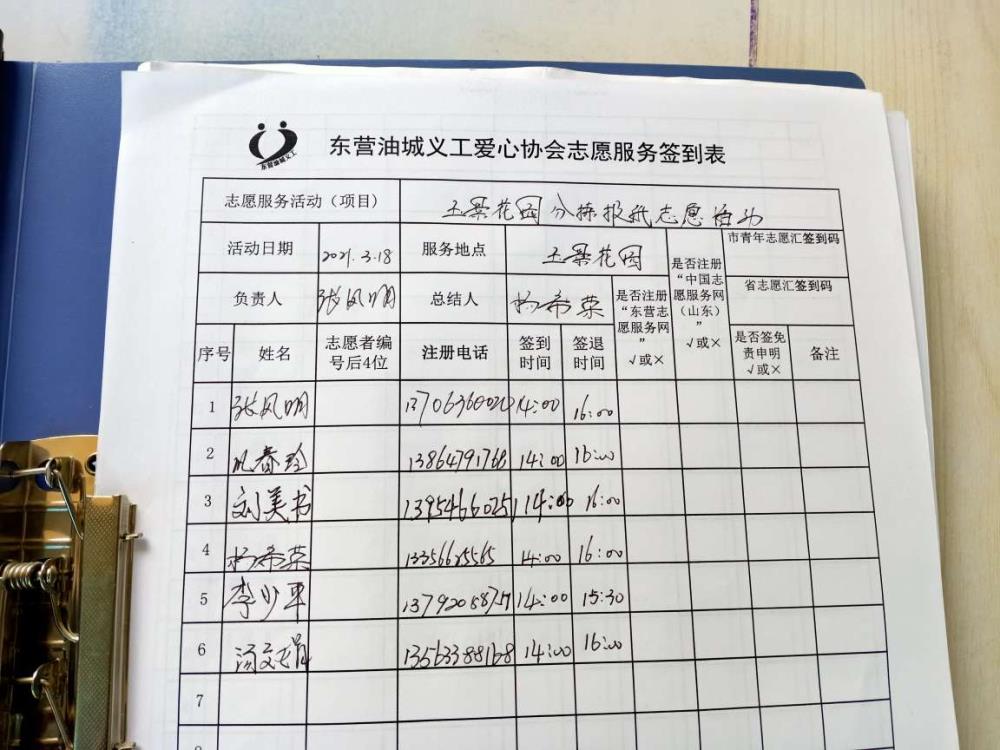 东营油城义工
东营油城义工爱心协会志愿服务签到表
志愿服务活动（项目） 玉景花园分拣报纸志愿活动
活动日期 2021.3.18 服务地点 玉景花园 市青年志愿汇签到码
负责人 张凤明 总结人 杨希荣 省志愿汇签到码
是否注册“东营志愿服务网”√或×
是否注册“中国志愿服务网（山东）”√或×
序号 姓名 志愿者编号后4位 注册电话 签到时间 签退时间 是否签免责申明√或× 备注
1 张凤明 14:00 16:00
2 13864791768 14:00 16:00
3 刘美书 13954660251 14:00 16:00
4 杨希荣 13356625565 14:00 16:00
5 李少军 14:00 15:30
6 13563388168 14:00 16:00
7